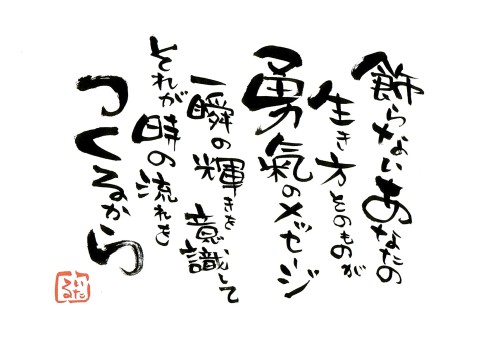 飾らないあなたの
生き方そのものが
勇氣のメッセージ
一瞬の輝きを意識して
それが時の流れを
つくるから